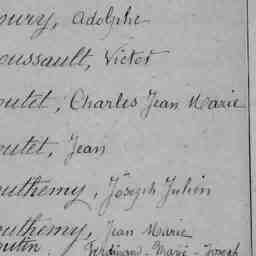 oury, Adolphe
oussault, Victor
outet, Charles Jean Marie
outet, Jean
outhemy, Joseph Julien
outhemy, Jean Marie
outin, Ferdinand-Marie-Joseph